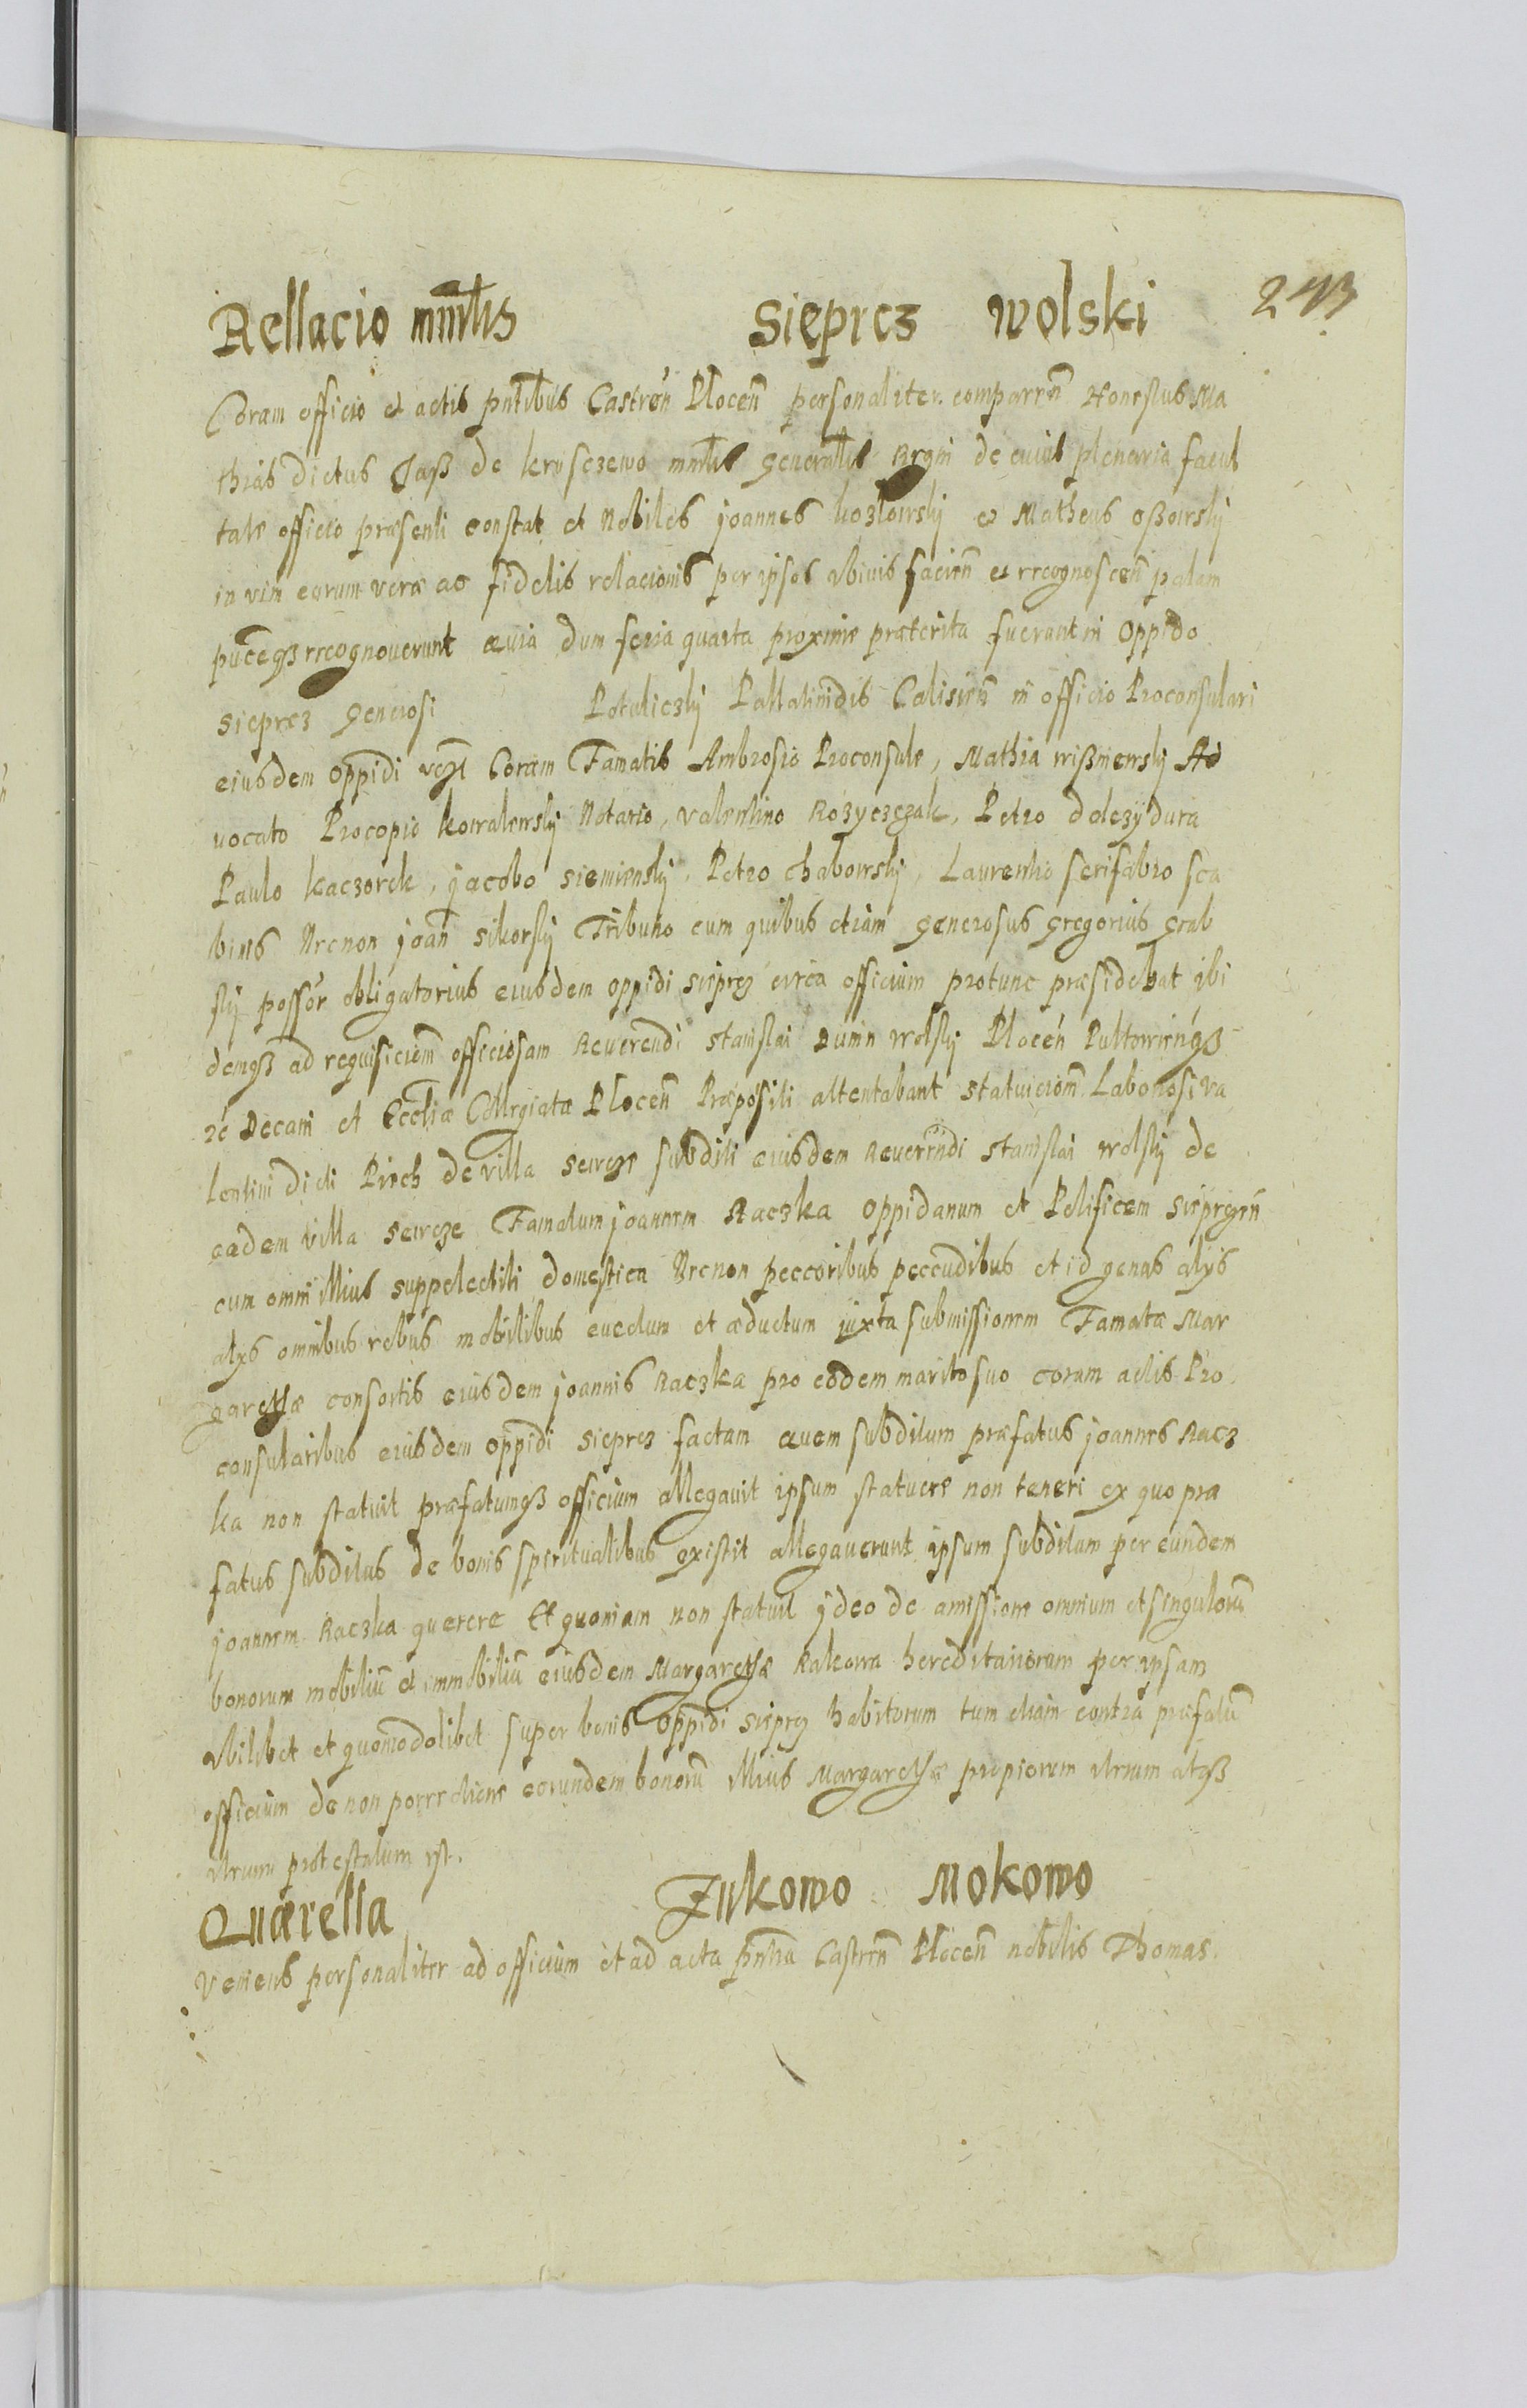 Rellacio mnrlis Sieprcz Wolski 243
Coram officio et actis pntibus Castren Plocen personaliter comparen Honestus Ma
thias dictus Jasz de kruszewo mnrlis generalis Regni de cuius plenaria facul
tate officio præsenti constat et Nobiles joannes kozlowsky et Matheus oszowsky
in vim eorum veræ ac fidelis relacionis per ipsos ubivis facien et recognoscen palam
puceqz recognoverunt quia dum feria quarta proxime præterita fuerant in oppido
Sieprcz Generosi Potuliczky Pallatinidis Calisien in officio Proconsulari
eiusdem oppidi vcz Coram Famatis Ambrosio Proconsule, Mathia wiszniewsky Ad
vocato Procopio kowalewsky Notario, valentino Rozyczczak, Petro dolezydura
Paulo kaczorek, jacobo siemiensky, Petro chabowsky, Laurentio serifabro sca
binis Necnon joan sikorsky Tribuno cum quibus etiam generosus gregorius grab
sky possor obligatorius eiusdem oppidi sieprcz circa officium protunc præsidebat ibi
demqz ad requisiciom officiosam Reverendi stanislai Dunin wolsky Plocen Pultovienqz
re Decani et Eccliæ Collegiatæ Plocen Præpositi attentabant statuiciom Laboriosi va
lentini dicti Pirch de villa sewcze subditi eiusdem Reverendi stanislai wolsky de
eadem villa sewcze Famatum joannem Raczka oppidanum et Pelificem sieprczen
cum omni illius suppelectili domestica Necnon peccoribus peccudibus et id genas alys
alys omnibus rebus mobilibus evectum et æductum juxta submissionem Famatæ Mar
garethæ consortis eiusdem joannis Raczka pro eodem marito suo coram actis Pro
consularibus eiusdem oppidi sieprcz factam quem subditum præfatus joannes Racz
ka non statuit præfatumqz officium allegavit ipsum statuere non teneri ex quo præ
fatus subditus de bonis spiritualibus existit allegaverunt ipsum subditum per eundem
joannem Raczka querere Et quoniam non statuit ideo de amissione omnium et singulorum
bonorum mobilium et immobilium eiusdem Margarethæ hereditariorum per ipsam
ubilibet et quomodolibet super bonis oppidi sieprcz habitorum tum etiam contra præfatum
officium de non eorundem bonorum illius Margarethæ propiorum iterum atqz
iterum protestatum est.
Quærella Zukowo Mokowo
Veniens personaliter ad officium et ad acta pntia Castren Plocen nobilis Thomas